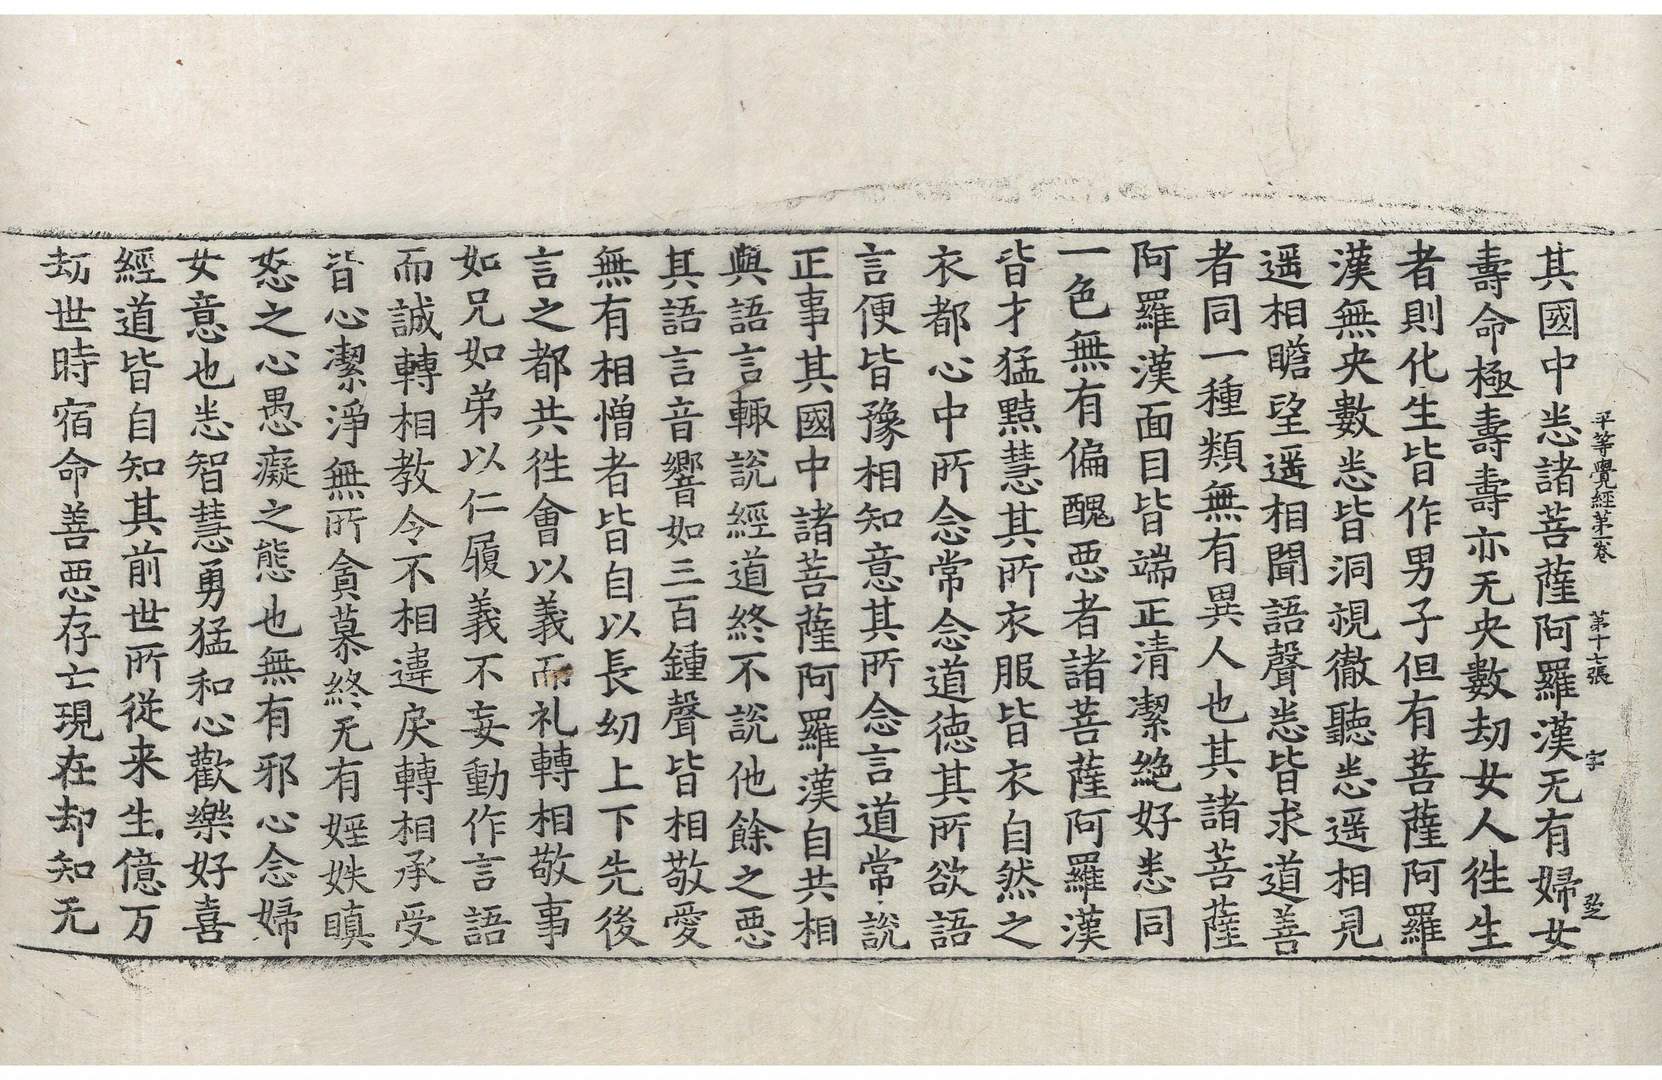 平等覺經第一卷 第十七張 字 㢤
其國中悉諸菩薩阿羅漢无有婦女
壽命極壽壽亦无央數劫女人徃生
者則化生皆作男子但有菩薩阿羅
漢無央數悉皆洞視徹聽悉遥相見
遥相瞻望遥相聞語聲悉皆求道善
者同一種類無有異人也其諸菩薩
阿羅漢面目皆端正清潔絶好悉同
一色無有偏醜惡者諸菩薩阿羅漢
皆才猛黠慧其所衣服皆衣自然之
衣都心中所念常念道德其所欲語
言便皆豫相知意其所念言道常說
正事其國中諸菩薩阿羅漢自共相
與語言輙說經道終不說他餘之惡
其語言音響如三百鍾聲皆相敬愛
無有相憎者皆自以長幼上下先後
言之都共徃會以義而礼轉相敬事
如兄如弟以仁履義不妄動作言語
而誠轉相教令不相違戾轉相承受
皆心潔淨無所貪慕終无有婬妷瞋
怒之心愚癡之態也無有邪心念婦
女意也悉智慧勇猛和心歡樂好喜
經道皆自知其前世所從来生億万
劫世時宿命善惡存亡現在却知无